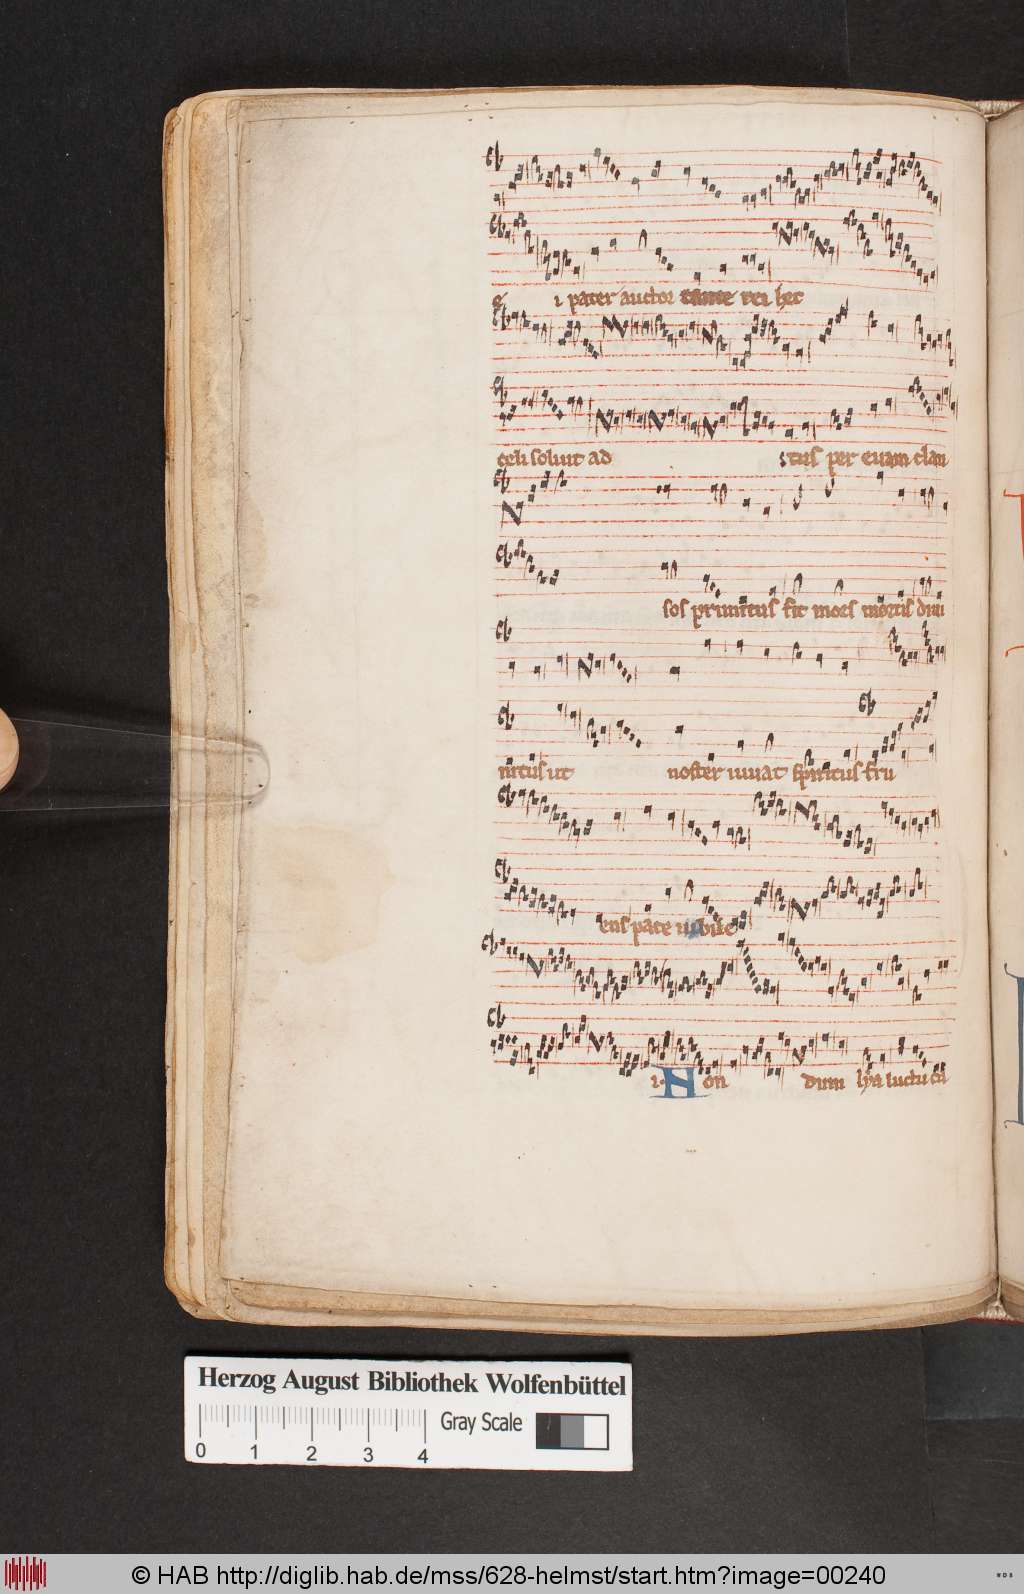 i pater auctor tame rei hec
celi soluit ad stus per euam clau
sos primitus fit mors mortis diui
nitus ut noster iuuat spiritus fru
ens pace
i. Non dum lyra luctu
Herzog August Bibliothek Wolfenbüttel
Gray Scale
0 1 2 3 4
© HAB http://diglib.hab.de/mss/628-helmst/start.htm?image=00240